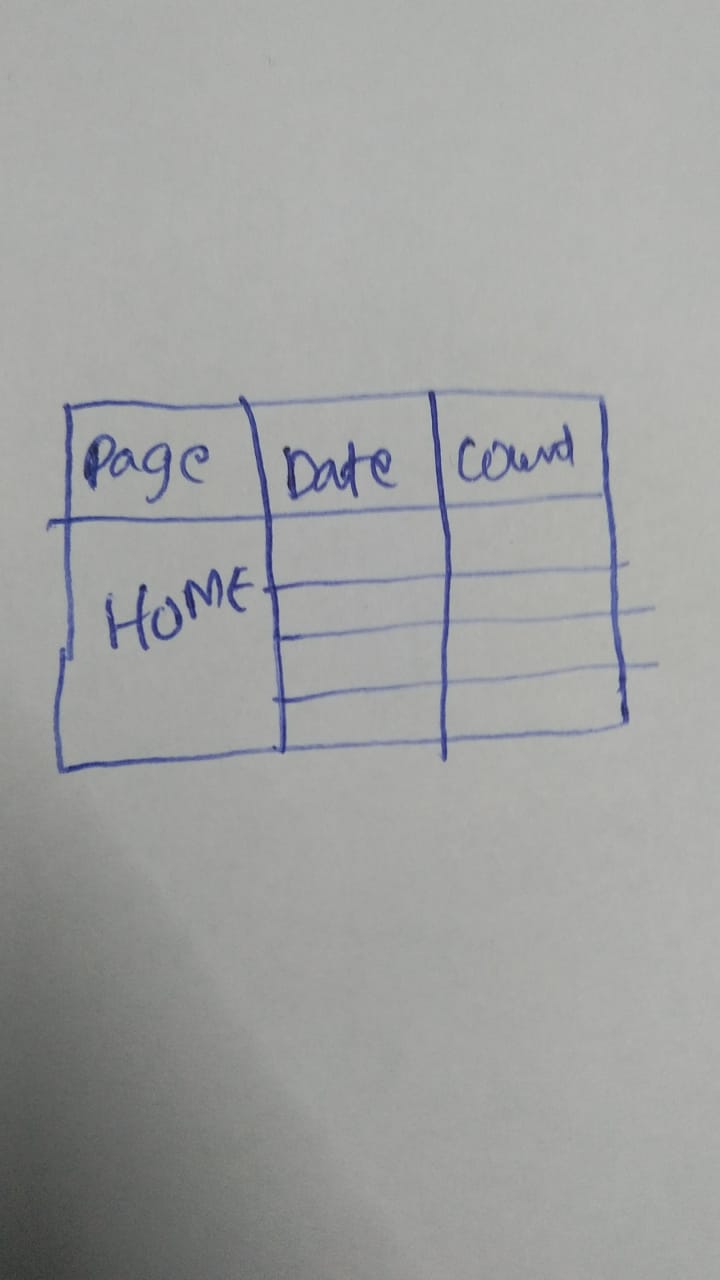 Page Date Count
HOME